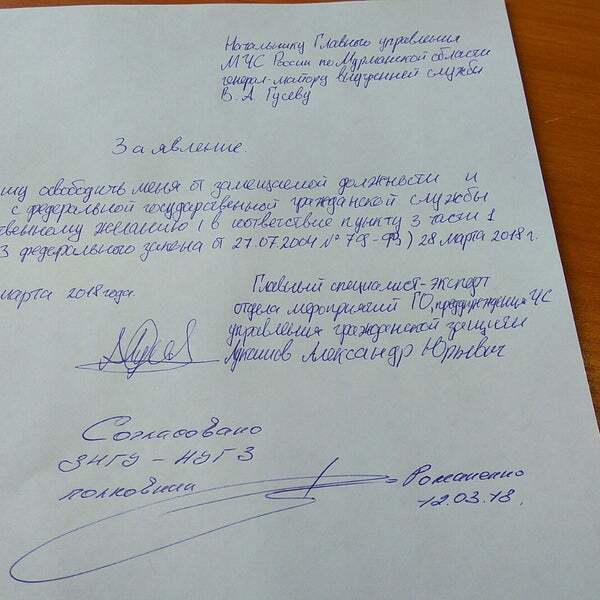 Начальнику Главного управления
МЧС России по Мурманской области
генерал-майору внутренней службы
В. А. Гусеву
Заявление.
ошу освободить меня от замещаемой должности и
с федеральной государственной гражданской службы
ственному желанию (в соответствие пункту 3 части 1
3 федерального закона от 27.07.2004 № 79-ФЗ) 28 марта 2018 г.
марта 2018 года.
Главный специалист-эксперт
отдела мероприятий ГО, предупреждения ЧС
управления гражданской защиты
Александр Юрьевич
Согласовано
ЗНГУ - НУГЗ
полковник
Романенко
12.03.18.